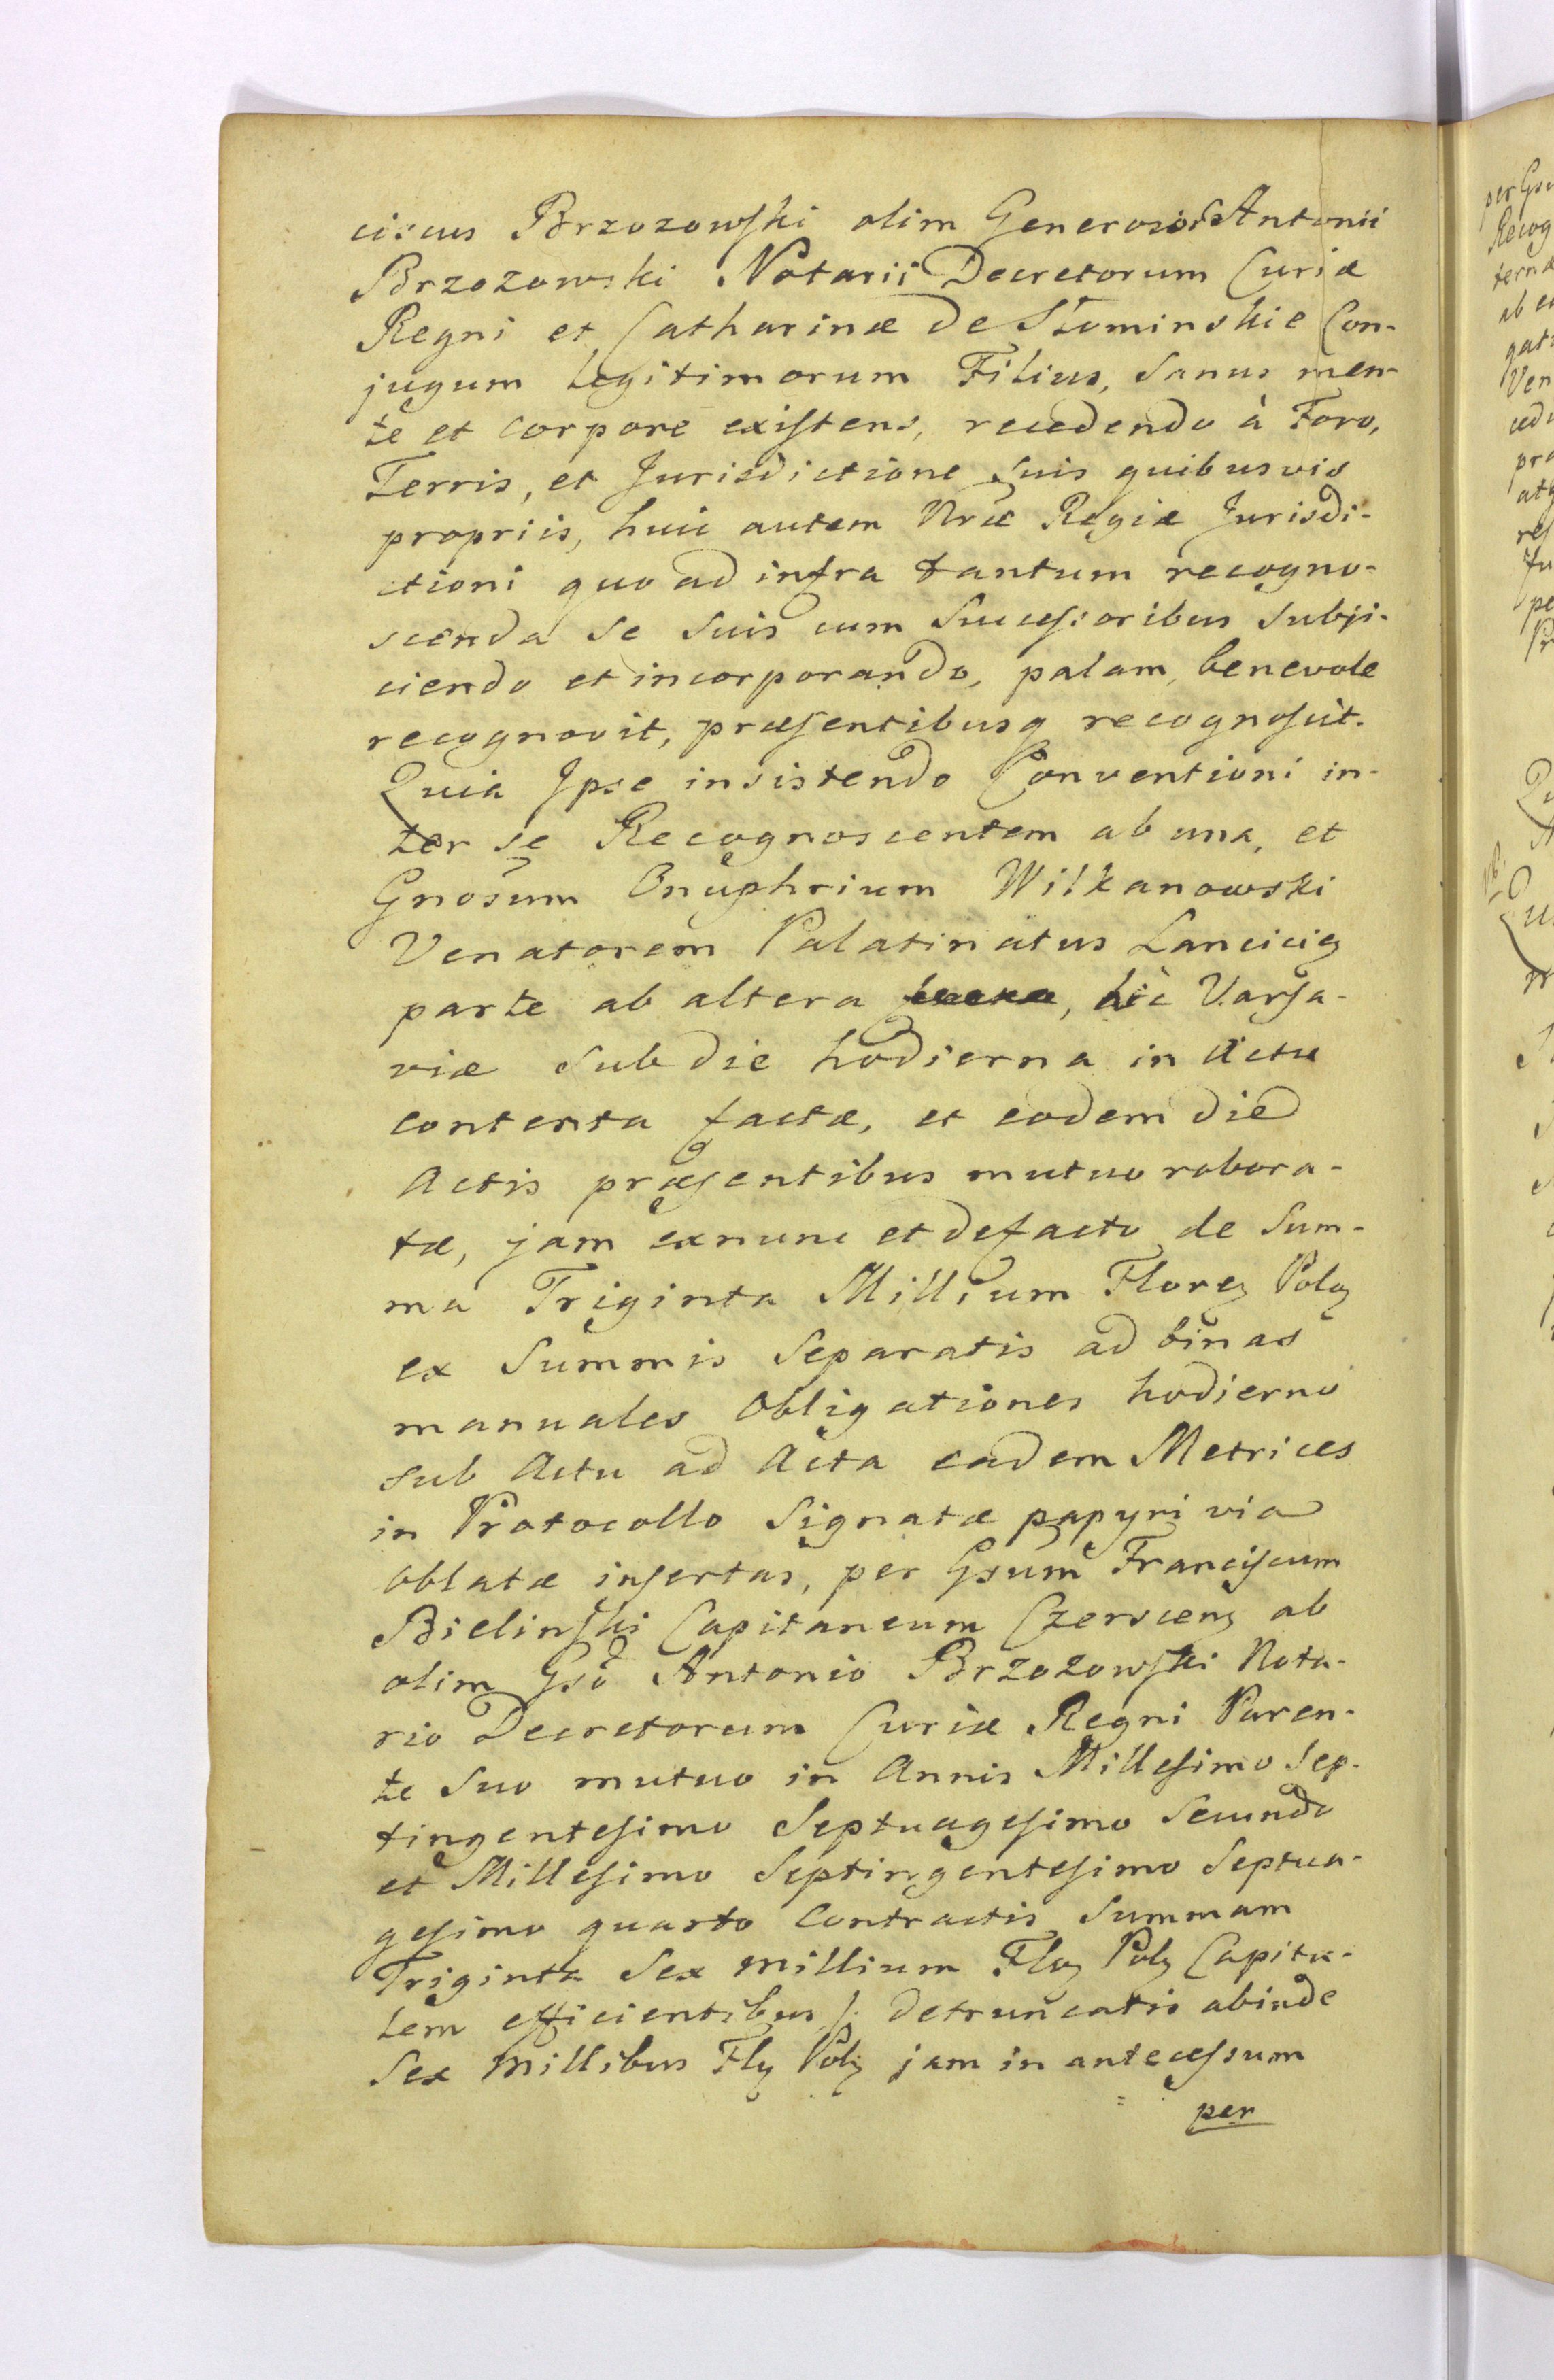 ciscus Brzozowski olim Generosor Antonii
Brzozowski Notarii Decretorum Curiæ
Regni et Catharinæ de Słominskie Con-
jugum Legitimorum Filius, Sanus men-
te et corpore existens, recedendo à Foro,
Terris, et Jurisdictione suis quibusvis
propriis, huic autem Nræ Regiæ Jurisdi-
ctioni quo ad infra tantum recogno-
scenda se suis cum Successoribus subji-
ciendo et incorporando, palam, benevole
recognovit, præsentibusq recognoscit.
Quia Ipse insistendo Conventioni in-
ter se Recognoscentem ab una, et
Gnosum Onuphrium Wilkanowski
Venatorem Palatinatus Lancicię
parte ab altera , hic Varsa-
viæ sub die hodierna in Actu
contenta factæ, et eodem die
Actis præsentibus mutuo robora-
tæ, jam exnunc et defacto de Sum-
ma Triginta Millium Floreӡ Polӡ
ex Summis Separatis ad binas
manuales Obligationes hodierno
sub Actu ad Acta eadem Metrices
in Protocollo Signatæ papyri via
Oblatæ insertas, per Gsum Franciscum
Bielinski Capitaneum Czerscenӡ ab
olim Gso Antonio Brzozowski Nota-
rio Decretorum Curiæ Regni Paren-
te suo mutuo in Annis Millesimo Sep-
tingentesimo Septuagesimo Secundo
et Millesimo Septingentesimo Septua-
gesimo quarto Contractis Summam
Triginta Sex Millium Floӡ Polӡ Capita-
lem efficientibus /: detruncatis abinde
Sex Millibus Flӡ Polӡ jam in antecessum
per
per
Recog
ternæ
ab
Ven